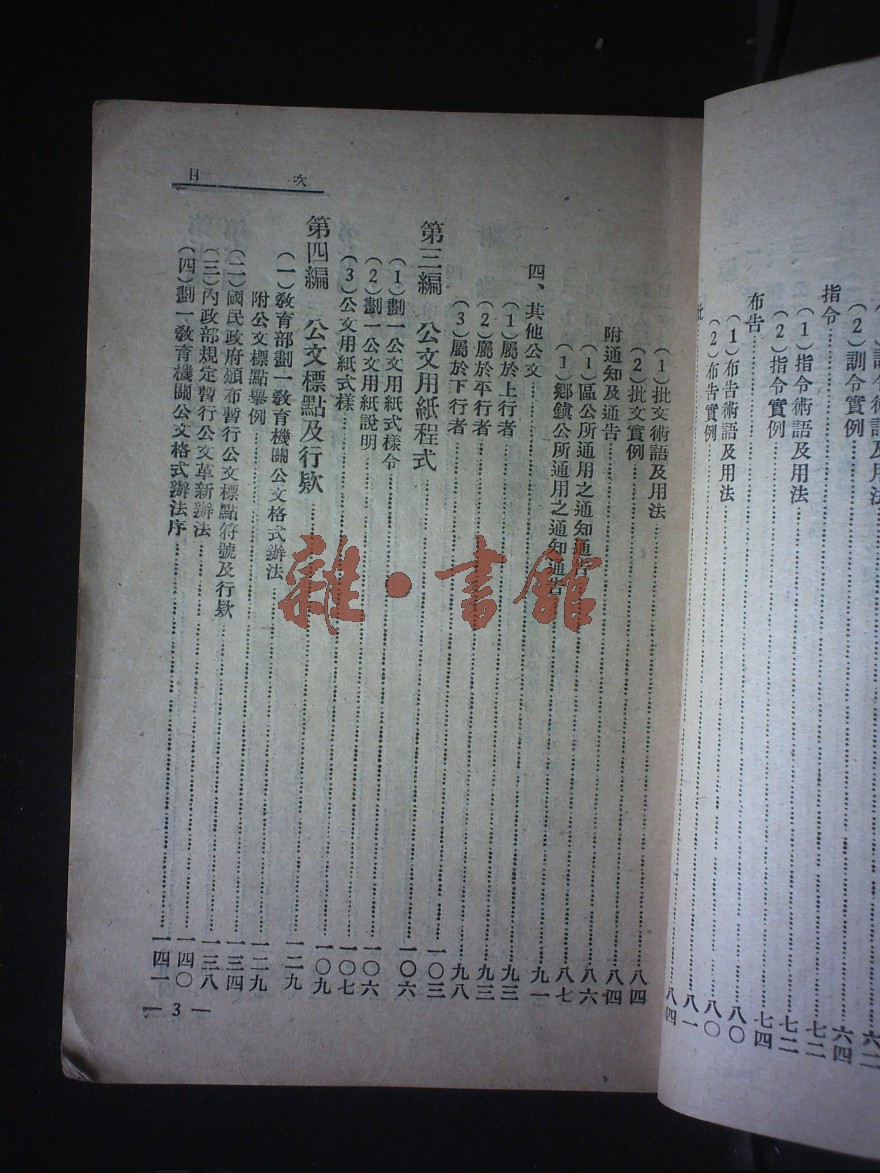 (1)訓令術語及用法……六二
(2)訓令實例……六四
指令……七二
(1)指令術語及用法……七二
(2)指令實例……七四
布告……八〇
(1)布告術語及用法……八〇
(2)布告實例……八一
批……八四
目次
(1)批文術語及用法……八四
(2)批文實例……八四
附通知及通告……八六
(1)區公所通用之通知通告……八七
(1)鄉鎮公所通用之通知通告……九一
四、其他公文……九三
(1)屬於上行者……九三
(2)屬於平行者……九八
(3)屬於下行者……一〇三
第三編 公文用紙程式……一〇六
(1)劃一公文用紙式樣令……一〇六
(2)劃一公文用紙說明……一〇七
(3)公文用紙式樣……一〇九
第四編 公文標點及行款……一二九
(一)教育部劃一教育機關公文格式辦法……一二九
附公文標點舉例……一三四
(二)國民政府頒布暫行公文標點符號及行款……一三八
(三)內政部規定暫行公文革新辦法……一四〇
(四)劃一教育機關公文格式辦法序……一四一
— 3 —
雜·書館